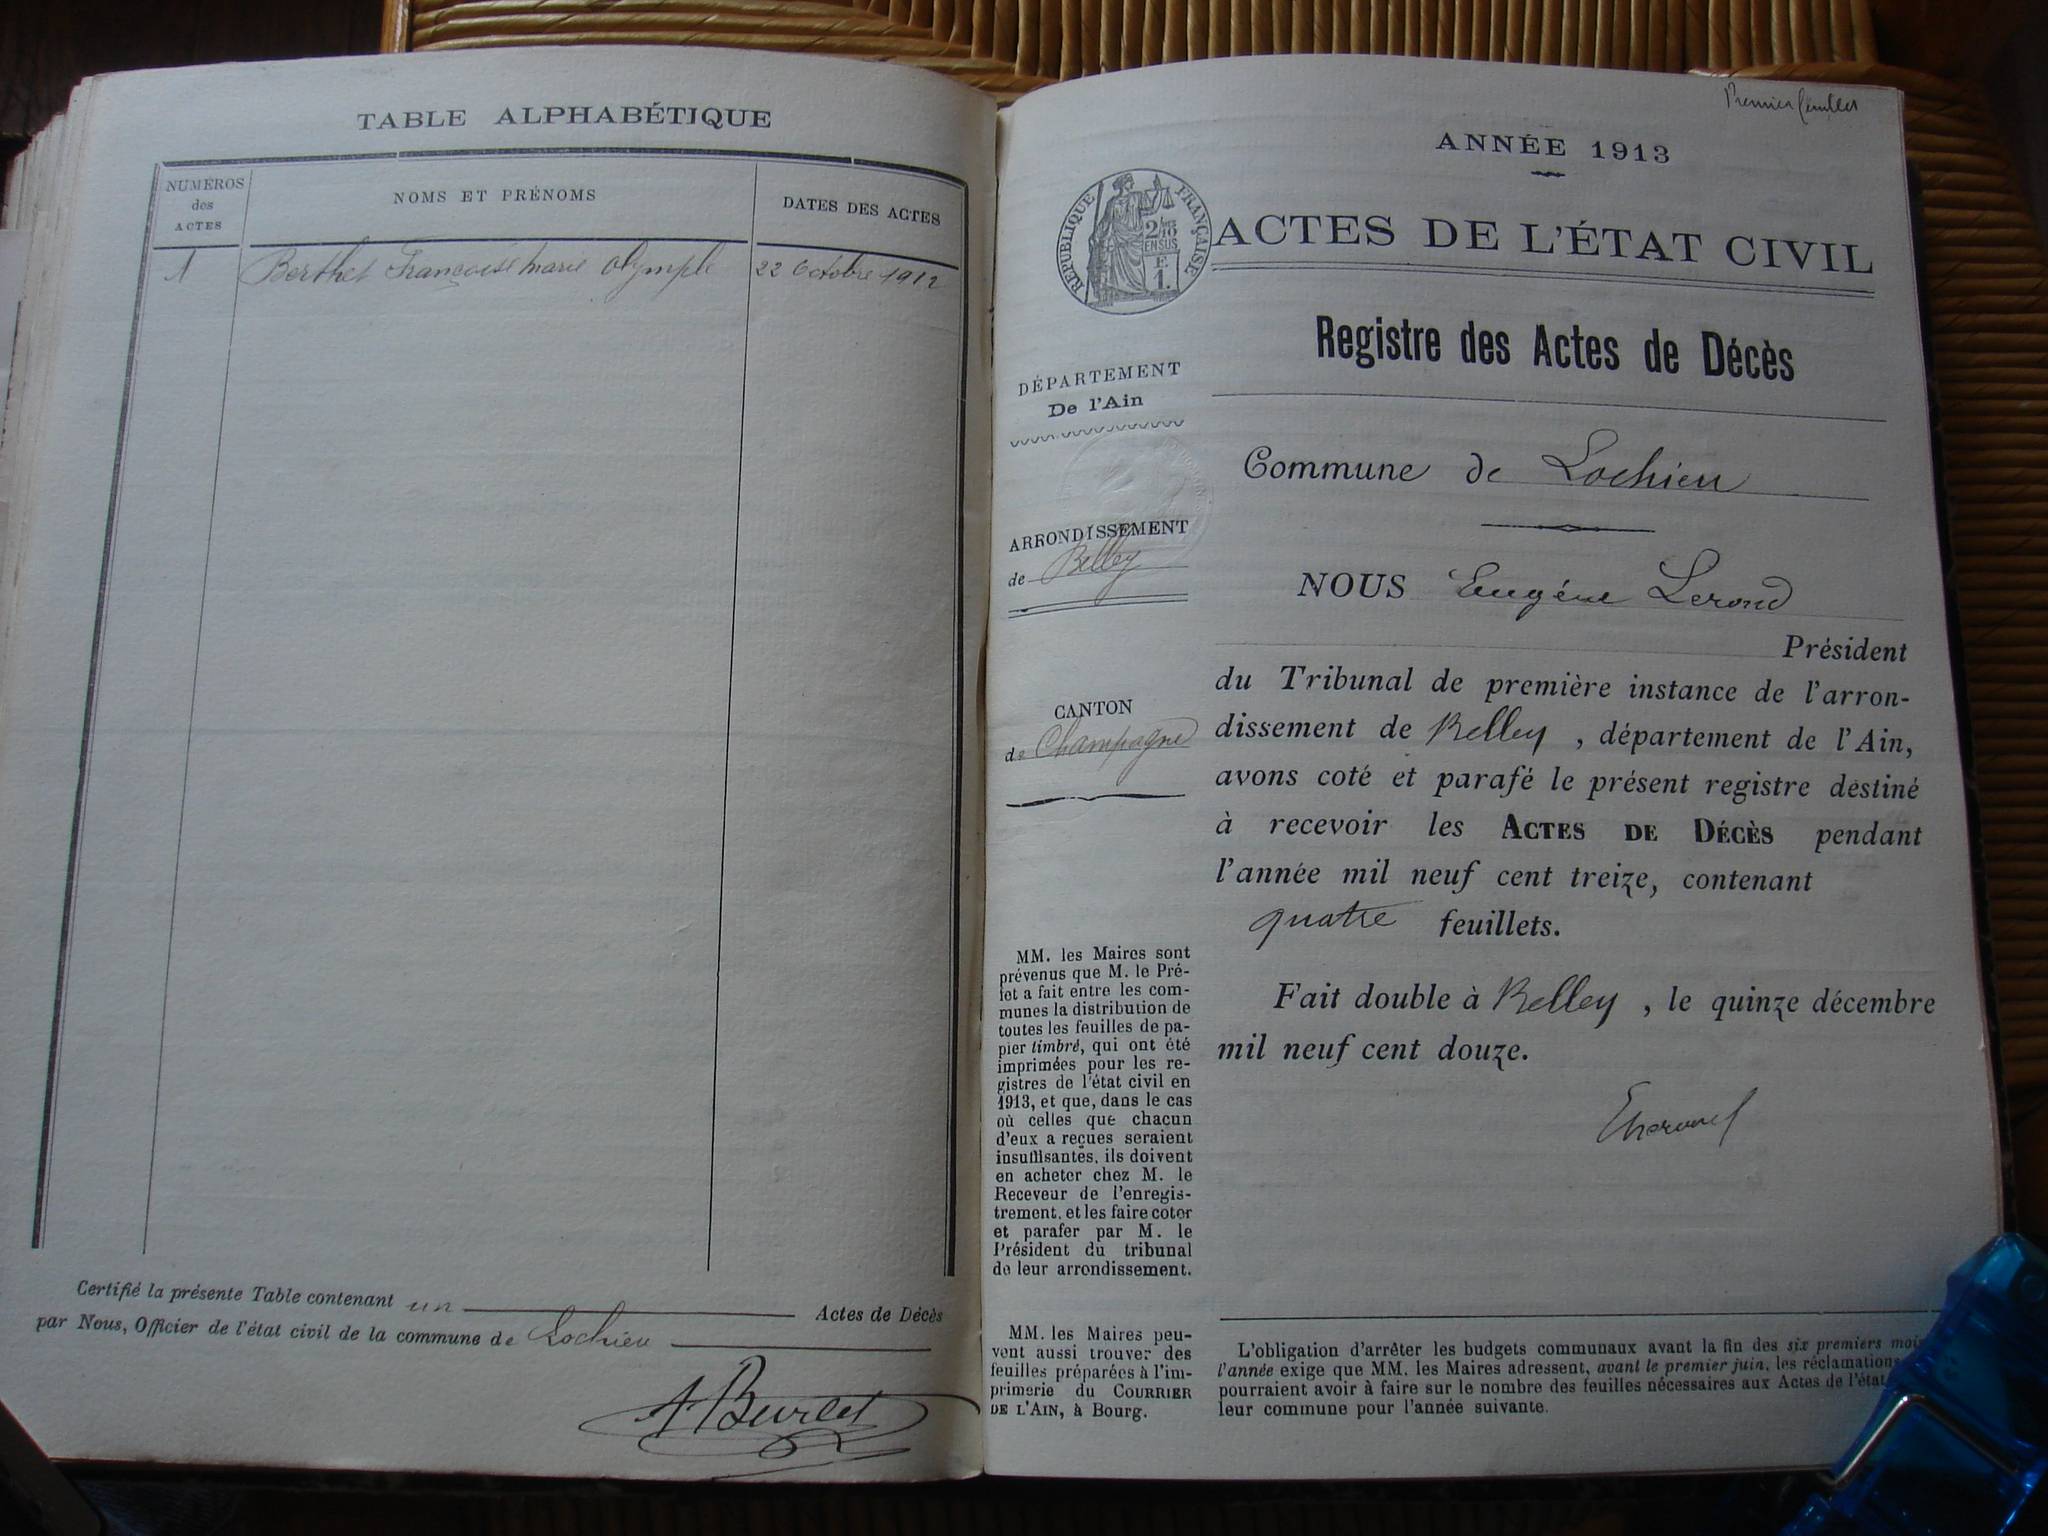 TABLE ALPHABÉTIQUE
NUMÉROS
des
ACTES
NOMS ET PRÉNOMS
DATES DES ACTES
1
Berthet Françoise Marie Olymple
22 Octobre 1912
Certifié la présente Table contenant un Actes de Décès
par Nous, Officier de l'état civil de la commune de Lochieu
A Burlet
Premier feuillet
ANNÉE 1913
RÉPUBLIQUE FRANÇAISE
ACTES DE L'ÉTAT CIVIL
Registre des Actes de Décès
DÉPARTEMENT
De l'Ain
ARRONDISSEMENT
de Belley
CANTON
de Champagne
MM. les Maires sont
prévenus que M. le Pré-
fet a fait entre les com-
munes la distribution de
toutes les feuilles de pa-
pier timbré, qui ont été
imprimées pour les re-
gistres de l'état civil en
1913, et que, dans le cas
où celles que chacun
d'eux a reçues seraient
insuffisantes, ils doivent
en acheter chez M. le
Receveur de l'enregis-
trement, et les faire coter
et parafer par M. le
Président du tribunal
de leur arrondissement.
MM. les Maires peu-
vent aussi trouver des
feuilles préparées à l'im-
primerie du COURRIER
DE L'AIN, à Bourg.
Commune de Lochieu
NOUS Eugène Lerond
Président
du Tribunal de première instance de l'arron-
dissement de Belley, département de l'Ain,
avons coté et parafé le présent registre destiné
à recevoir les ACTES DE DÉCÈS pendant
l'année mil neuf cent treize, contenant
quatre feuillets.
Fait double à Belley, le quinze décembre
mil neuf cent douze.
L'obligation d'arrêter les budgets communaux avant la fin des six premiers moi
l'année exige que MM. les Maires adressent, avant le premier juin, les réclamations
pourraient avoir à faire sur le nombre des feuilles nécessaires aux Actes de l'état
leur commune pour l'année suivante.